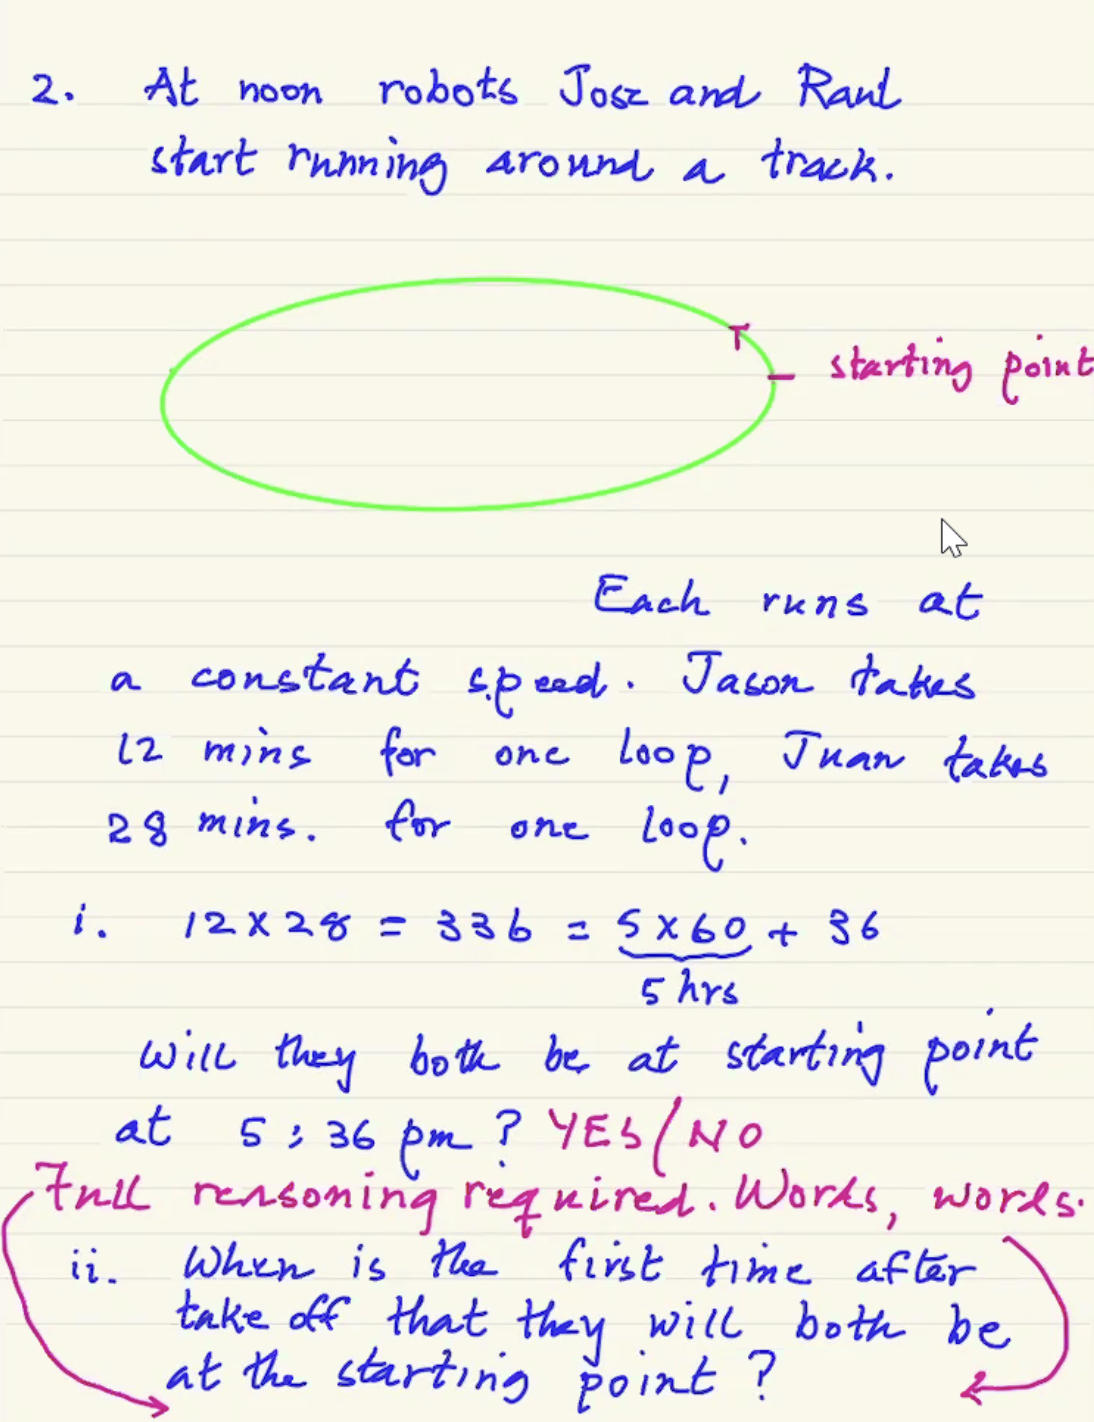 2. At noon robots Jose and Raul
start running around a track.
starting point
Each runs at
a constant speed. Jason takes
12 mins for one loop, Juan takes
28 mins. for one loop.
i. 12 x 28 = 336 = 5 x 60 + 36
5 hrs
Will they both be at starting point
at 5:36 pm? YES/NO
Full reasoning required. Words, words.
ii. When is the first time after
take off that they will both be
at the starting point?